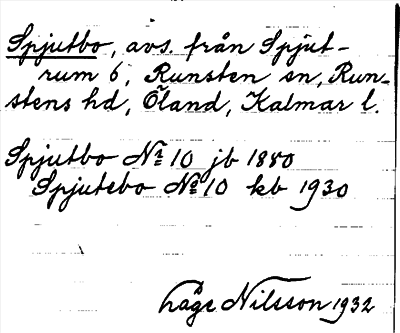 Spjutbo, avs. från Spjut-
rum 6, Runsten sn, Run-
stens hd, Öland, Kalmar l.
Spjutbo No 10 jb 1880
Spjutebo No 10 kb 1930
Åge Nilsson 1932